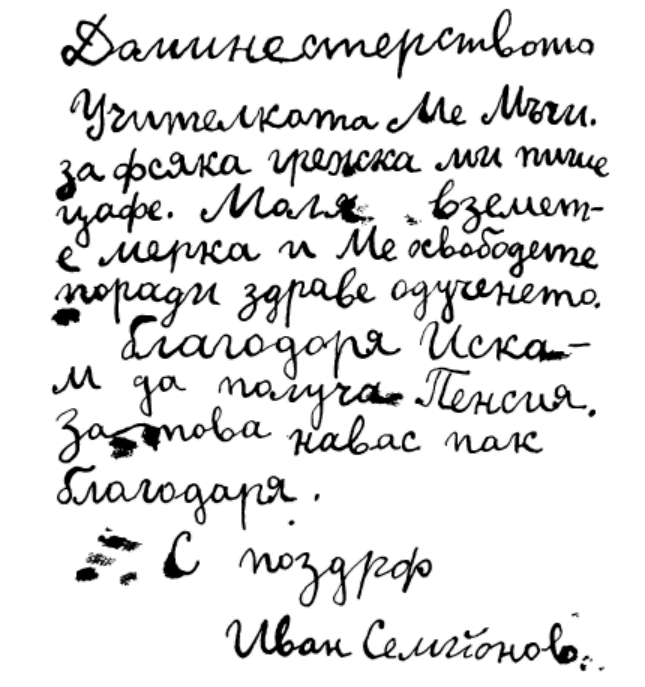 Даминестерството
Учителката Ме Мъчи.
за фсяка грежка ми пише
цафе. Моля вземет-
е мерка и Ме освободете
поради здраве одученето.
благодоря Иска-
м да получа Пенсия.
За това навас пак
благодаря.
С поздрф
Иван Семйонов.